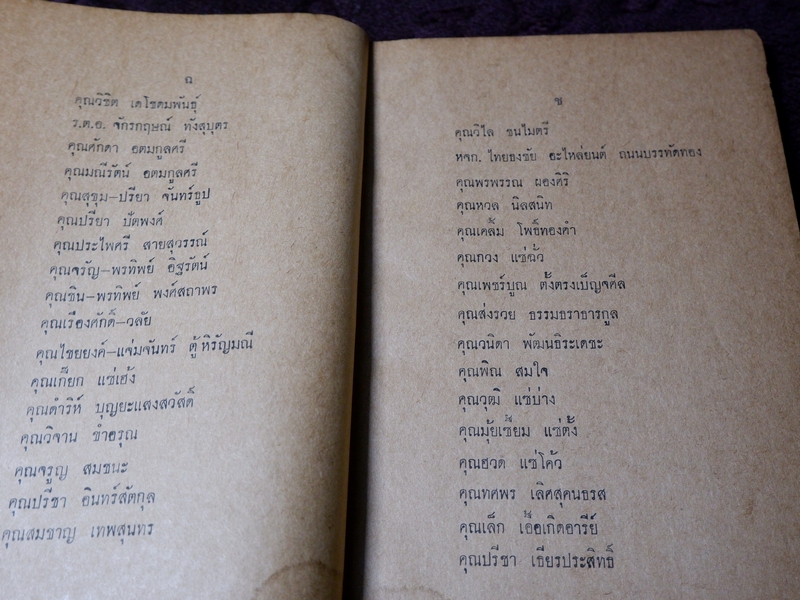 ฉ
คุณวิชิต เดโชคมพันธุ์
ร.ต.อ. จักรกฤษณ์ ทังสุบุตร
คุณศักดา อตมกูลศรี
คุณมณีรัตน์ อตมกูลศรี
คุณสุขุม–ปรียา จันทร์ธูป
คุณปรียา บัตพงศ์
คุณประไพศรี สายสุวรรณ์
คุณจรัญ–พรทิพย์ อิฐรัตน์
คุณชิน–พรทิพย์ พงศ์สถาพร
คุณเรืองศักดิ์–วลัย
คุณไชยยงค์–แจ่มจันทร์ ตู้หิรัญมณี
คุณเกี๊ยก แซ่เฮ้ง
คุณดำริห์ บุญยะแสงสวัสดิ์
คุณวิจาน ขำอรุณ
คุณจรูญ สมชนะ
คุณปรีชา อินทร์สัตกุล
คุณสมชาญ เทพสุนทร
ช
คุณวิไล ชนไมตรี
หจก. ไทยธงชัย อะไหล่ยนต์ ถนนบรรทัดทอง
คุณพรพรรณ ผองศิริ
คุณหวล นิลสนิท
คุณเคลิ้ม โพธิ์ทองคำ
คุณกวง แซ่ฉั่ว
คุณเพชร์บูณ ตั้งตรงเบ็ญจศีล
คุณส่งรวย ธรรมธราธารกูล
คุณวนิดา พัฒนธิระเดชะ
คุณพิณ สมใจ
คุณวุฒิ แซ่บ่าง
คุณมุ้ยเซี้ยม แซ่ตั้ง
คุณฮวด แซ่โค้ว
คุณทศพร เลิศสุคนธรส
คุณเล็ก เอื้อเกิดอารีย์
คุณปรีชา เธียรประสิทธิ์